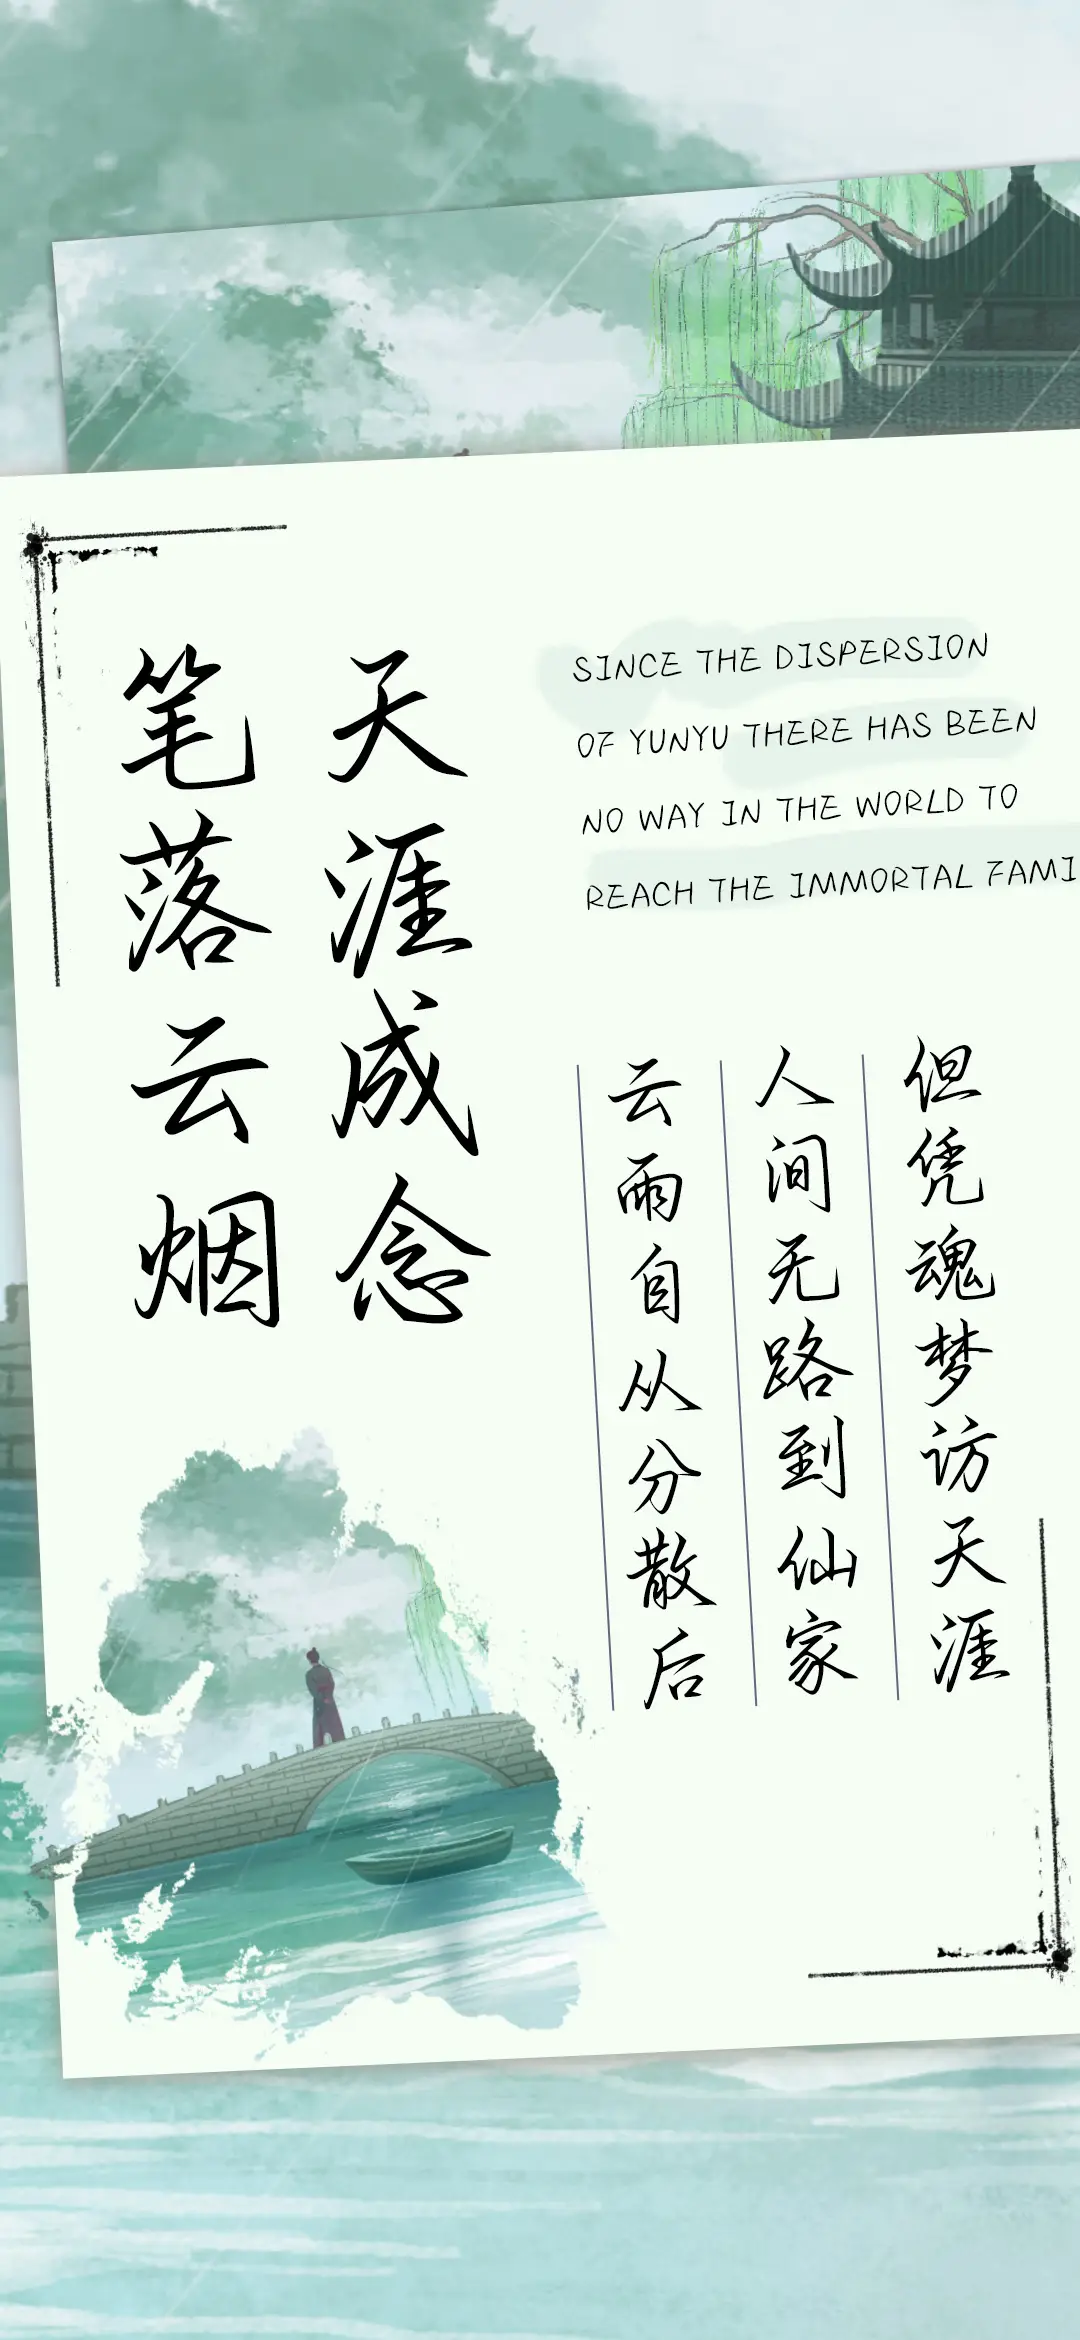 笔落云烟
天涯成念
SINCE THE DISPERSION
OF YUNYU THERE HAS BEEN
NO WAY IN THE WORLD TO
REACH THE IMMORTAL FAMI
云雨自从分散后
人间无路到仙家
但凭魂梦访天涯